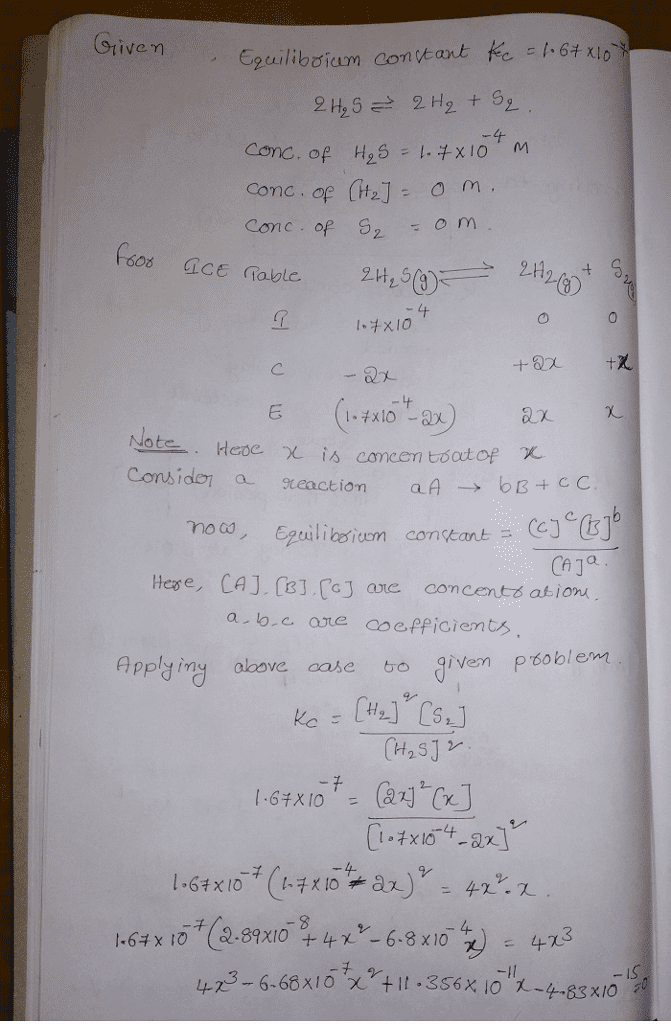 Given , Equilibrium constant Kc = 1.67 x10⁻⁷
2H₂S ⇌ 2H₂ + S₂.
conc. of H₂S = 1.7x10⁻⁴ M
conc. of [H₂] = 0 m.
conc. of S₂ = 0 m.
foor ICE Table 2H₂S(g) ⇌ 2H₂(g) + S₂(g)
I 1.7x10⁻⁴ 0 0
C -2x +2x +x
E (1.7x10⁻⁴-2x) 2x x
Note. Here x is concentratof x
Consider a reaction aA → bB + cC.
now, Equilibrium constant = [C]ᶜ[B]ᵇ
[A]ᵃ.
Here, [A].[B].[C] are concentrations.
a.b.c are coefficients.
Applying above case to given problem.
Kc = [H₂]²[S₂]
[H₂S]².
1.67x10⁻⁷ = [2x]²[x]
[1.7x10⁻⁴-2x]²
1.67x10⁻⁷(1.7x10⁻⁴ 2x)² = 4x².x.
1.67x10⁻⁷(2.89x10⁻⁸+4x²-6.8x10⁻⁴x) = 4x³
4x³-6.68x10⁻⁷x²+11.356x10⁻¹¹x-4.83x10⁻¹⁵=0